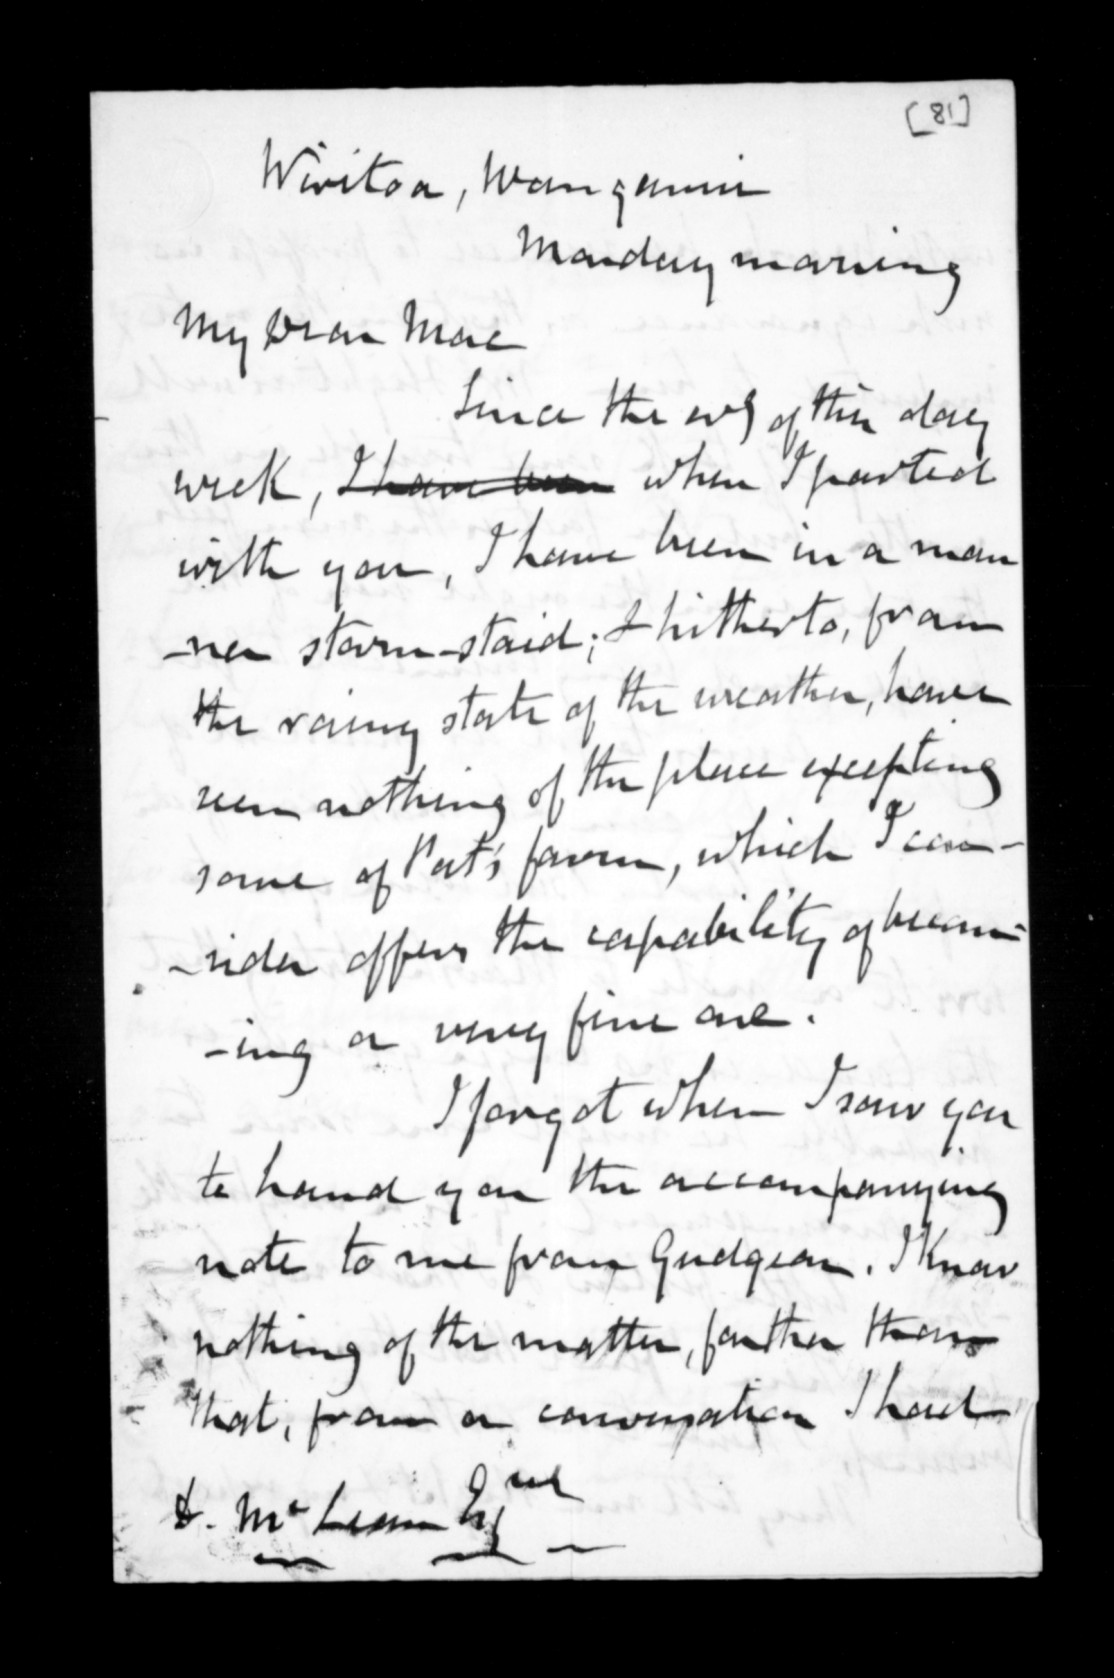 [81]
Wiritoa, Wanganui
Monday morning
My Dear Mac
Since the evg of this day
week, I have been when I parted
with you, I have been in a man
-ner storm-staid; & hitherto, from
the rainy state of the weather, have
seen nothing of the place excepting
some of Pat's farm, which I con-
-sider offers the capability of becom-
-ing a very fine one.
I forgot when I saw you
to hand you the accompanying
note to me from Gudgeon. I know
nothing of the matter, farther than
that, from a conversation I had
D. McLean Esqre